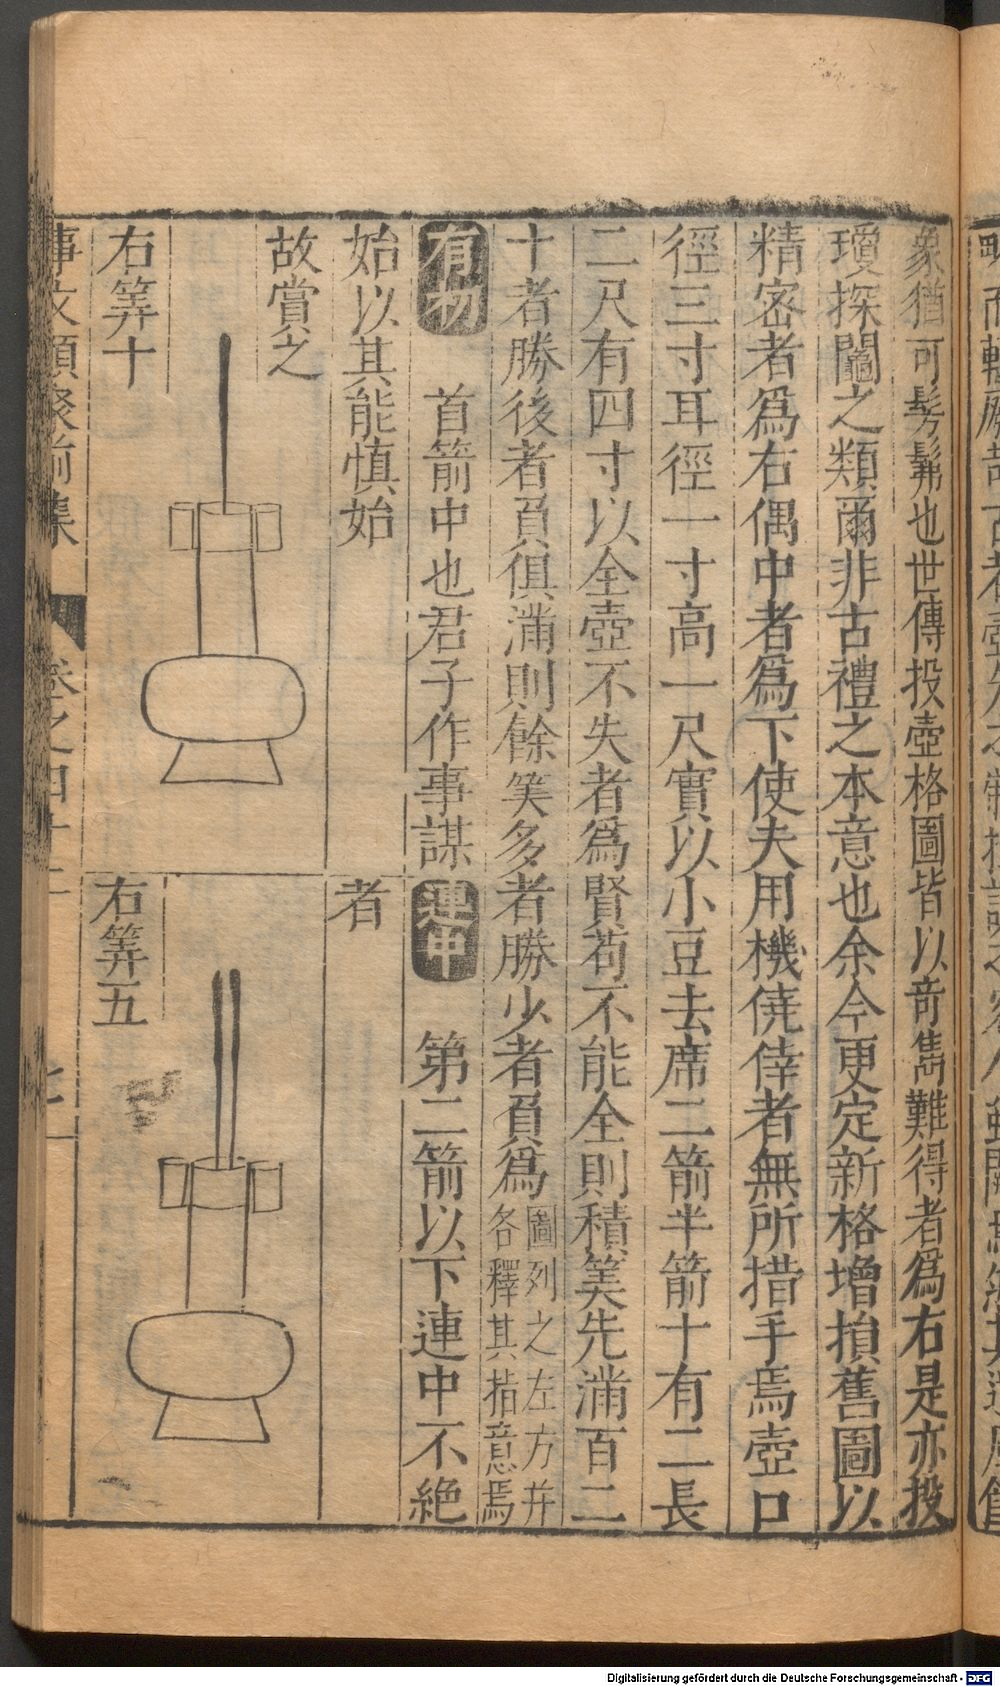 象猶可髣髴也世傳投壺格圖皆以竒雋難得者爲右是亦投
瓊探鬮之類爾非古禮之本意也余今更定新格增損舊圖以
精密者爲右偶中者爲下使夫用機僥倖者無所措手焉壺口
徑三寸耳徑一寸高一尺實以小豆去席二箭半箭十有二長
二尺有四寸以全壺不失者爲賢苟不能全則積筭先滿百二
十者勝後者負俱滿則餘筭多者勝少者負爲圖列之左方并
各釋其指意焉
有初 首箭中也君子作事謀
始以其能慎始
故賞之
右筭十
連中 第二箭以下連中不絶
者
右筭五
事文類聚前集 卷之四十二
Digitalisierung gefördert durch die Deutsche Forschungsgemeinschaft - DFG